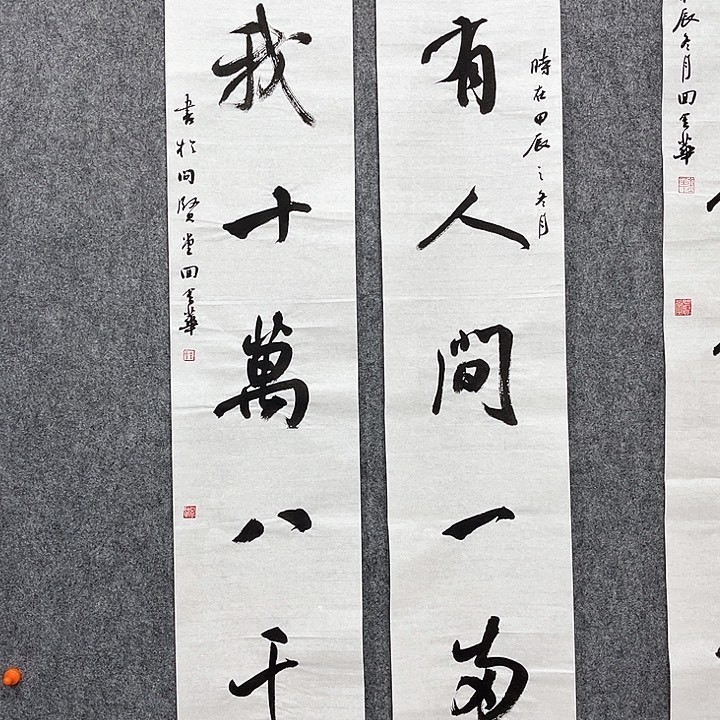 辰冬月田華
時在甲辰之冬月
有人間一兩
我十萬八千
書於問賢堂田華